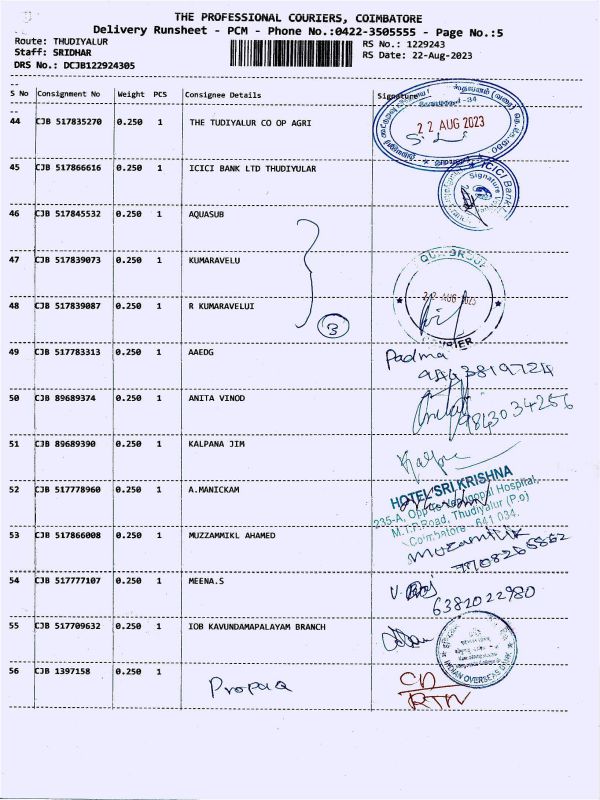 THE PROFESSIONAL COURIERS, COIMBATORE
Delivery Runsheet - PCM - Phone No.:0422-3505555 - Page No.:5
Route: THUDIYALUR
RS No.: 1229243
Staff: SRIDHAR
RS Date: 22-Aug-2023
DRS No.: DCJB122924305
S No Consignment No Weight PCS Consignee Details Signature
44 CJB 517835270 0.250 1 THE TUDIYALUR CO OP AGRI
22 AUG 2023
45 CJB 517866616 0.250 1 ICICI BANK LTD THUDIYULAR
ICICI Bank
Signature
46 CJB 517845532 0.250 1 AQUASUB
47 CJB 517839073 0.250 1 KUMARAVELU
22 AUG 2023
48 CJB 517839087 0.250 1 R KUMARAVELUI
3
49 CJB 517783313 0.250 1 AAEDG Padma
50 CJB 89689374 0.250 1 ANITA VINOD
9843034256
51 CJB 89689390 0.250 1 KALPANA JIM
52 CJB 517778960 0.250 1 A.MANICKAM
HOTEL SRI KRISHNA
235-A, Opp Venugopal Hospital,
M.T.P.Road, Thudiyalur (P.o)
Coimbatore 641 034.
53 CJB 517866008 0.250 1 MUZZAMMIKL AHAMED
54 CJB 517777107 0.250 1 MEENA.S
6382022980
55 CJB 517709632 0.250 1 IOB KAVUNDAMAPALAYAM BRANCH
INDIAN OVERSEAS BANK
56 CJB 1397158 0.250 1 Propaa
CD
RTN